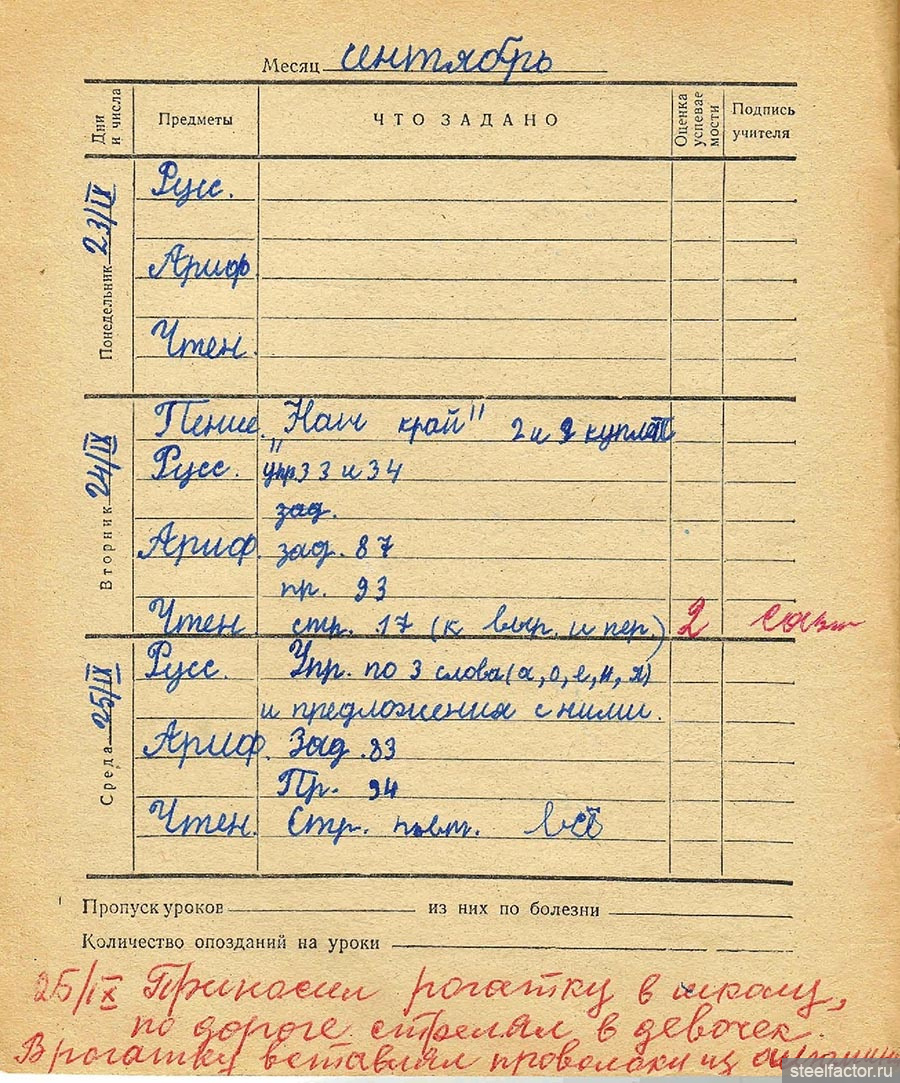 Месяц сентябрь
Дни и числа Предметы ЧТО ЗАДАНО Оценка успевае мости Подпись учителя
Понедельник 23/IX
Русс.
Ариф
Чтен.
Вторник 24/IX
Пение. "Наш край" 2 и куплет
Русс. упр 33 и 34
зад.
Ариф. зад. 87
пр. 93
Чтен. стр. 17 (к выр. и пер.) 2
Среда 25/IX
Русс. Упр. по 3 слова (а, о, е, и, я)
и предложения с ними.
Ариф. Зад. 83
Пр. 94
Чтен. Стр. повт. всё
Пропуск уроков из них по болезни
Количество опозданий на уроки
25/IX Приносил рогатку в школу,
по дороге стрелял в девочек.
В рогатку вставлял проволоки из
steelfactor.ru